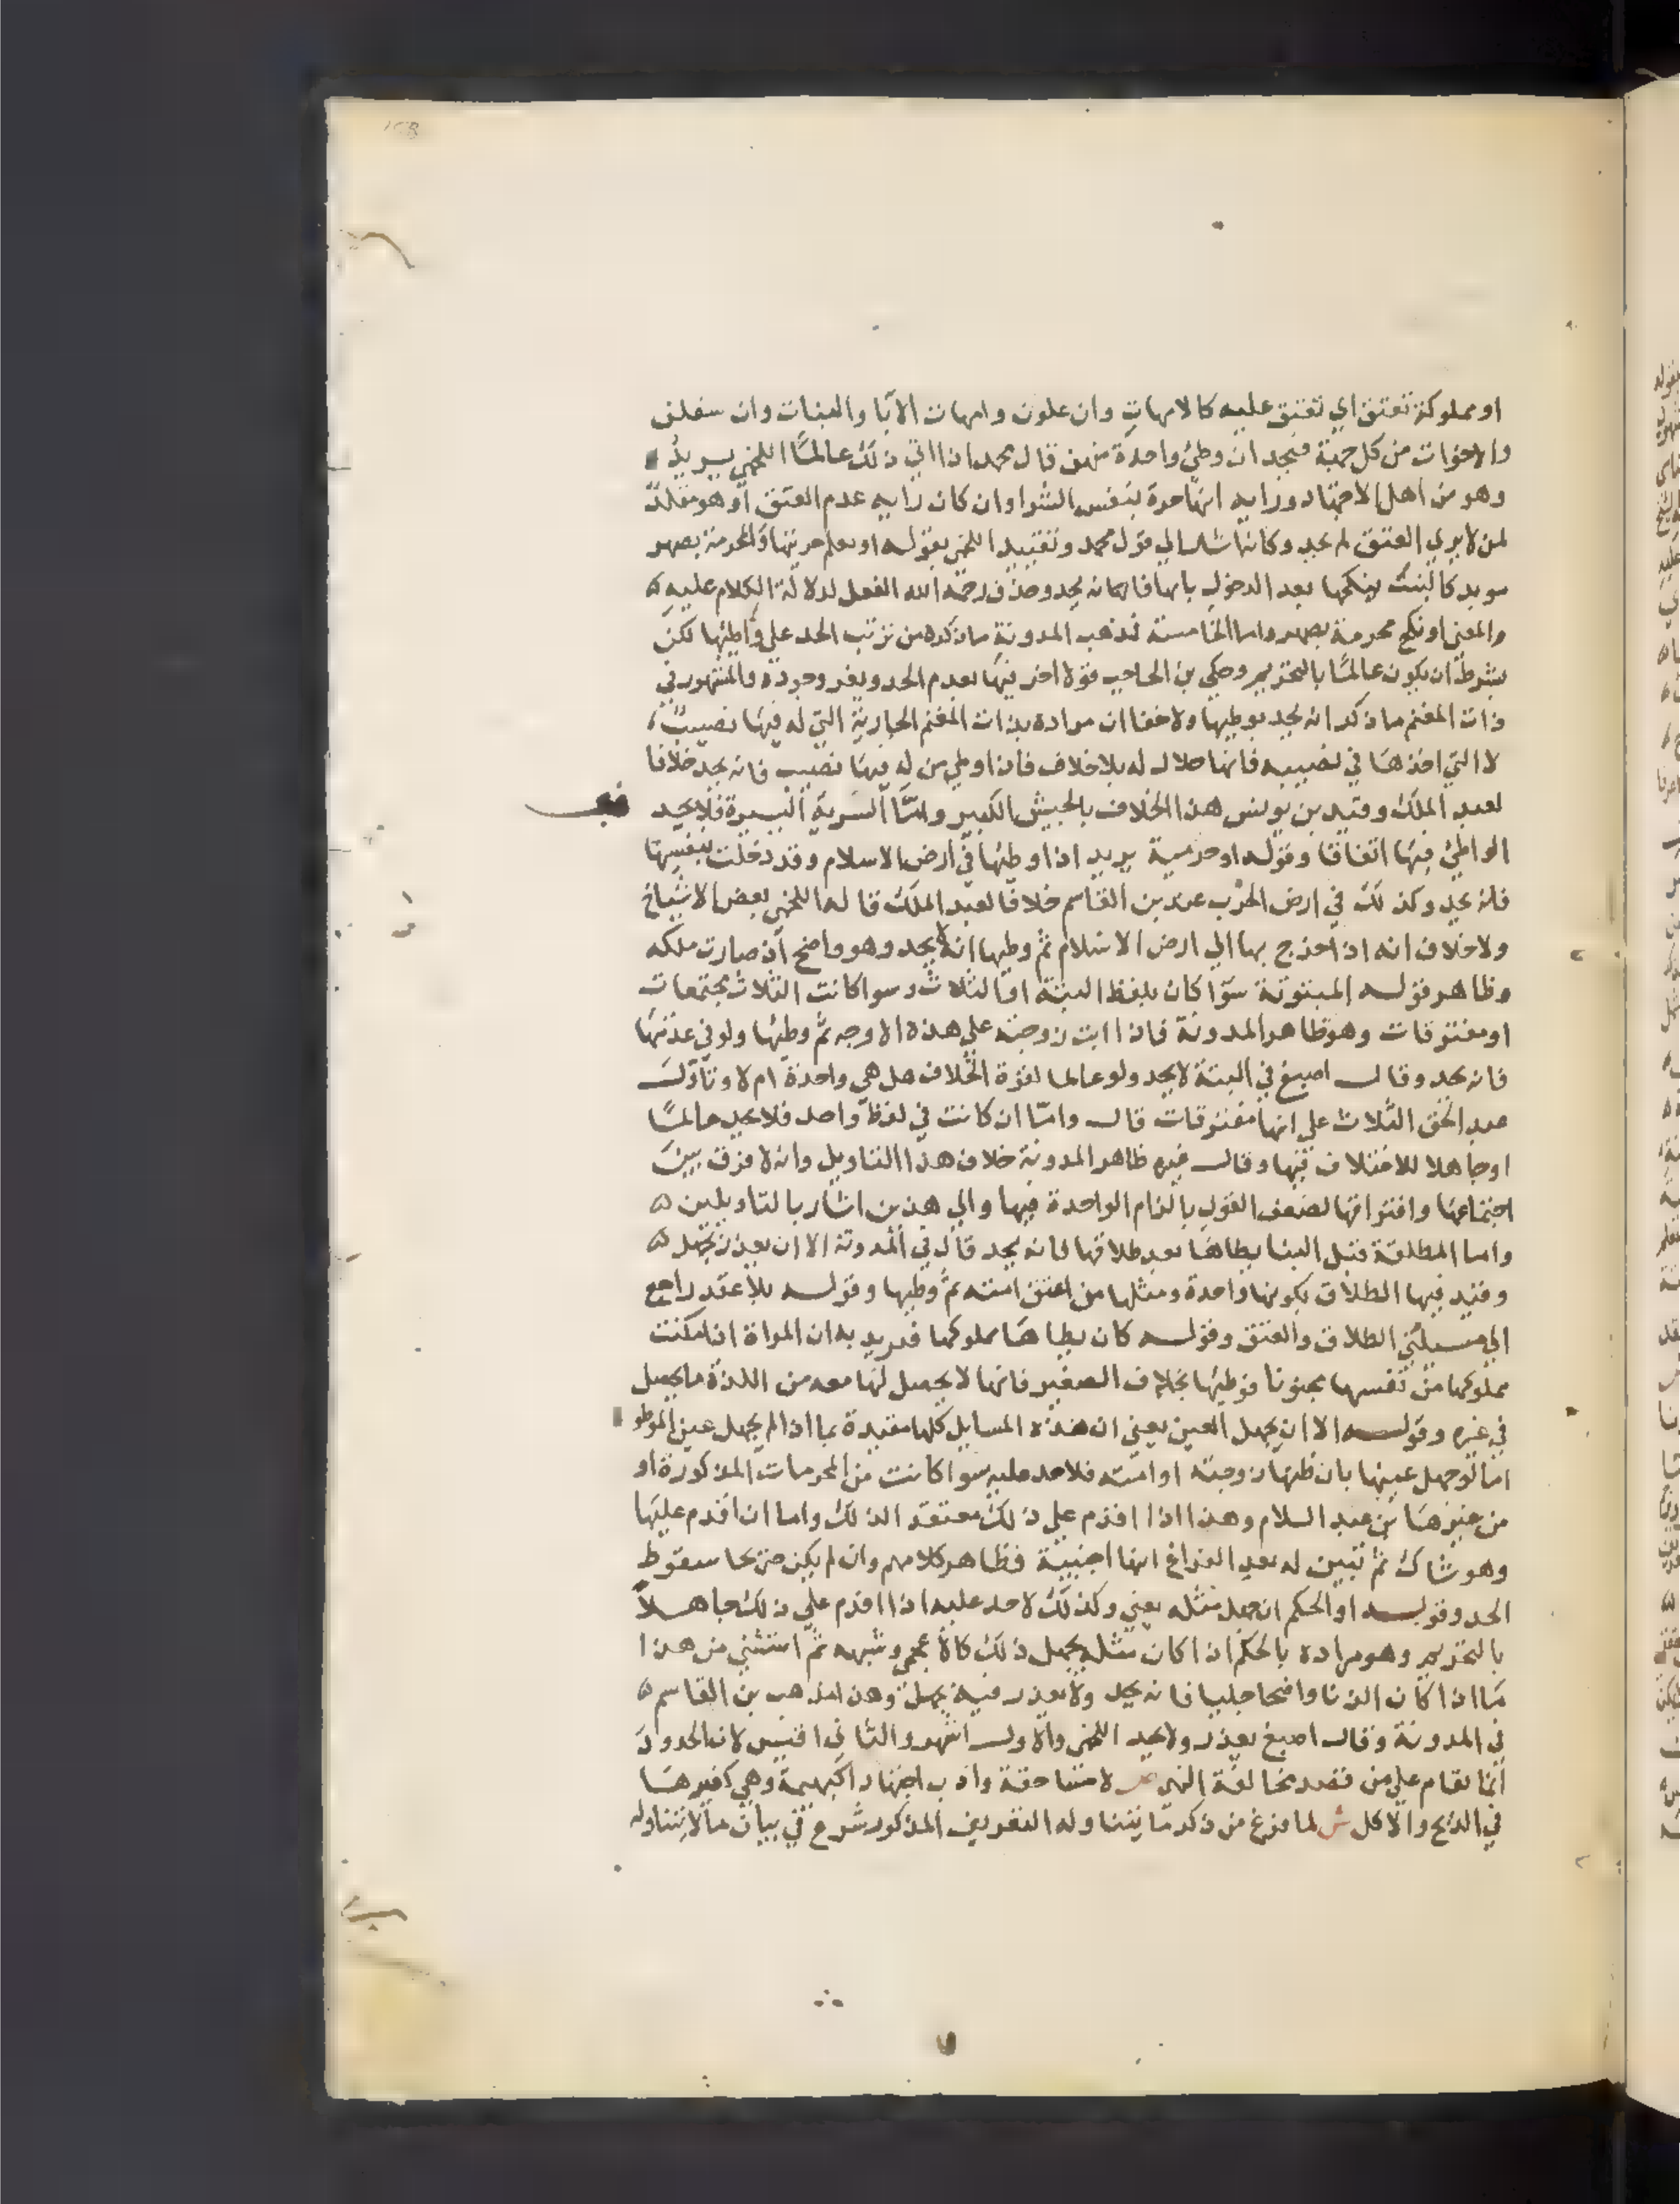 او مملوكة تعتق اي تعتق عليه كالامهات وان علون وامهات الابا والبنات وان سفلن
والاخوات من كل جهة فيحد ان وطئ واحدة منهن قال محمد اذا اتي ذلك عالما اللخمي يريد
وهو من اهل الاجتهاد ورايه انها حرة بنفس الشرا وان كان رايه عدم العتق او هو مقلد
لمن لا يري العتق لم يحد وكانه اشار الي قول محمد وتقييد اللخمي بقوله او يعلم حريتها والمحرمة بصهر
موبد كالبنت ينكحها بعد الدخول بامها فانه يحد وحذف رحمه الله الفعل لدلالة الكلام عليه ه
والمعني او نكح محرمة بصهر واما الخامسة فمذهب المدونة ما ذكره من ترتب الحد علي واطئها لكن
بشرط ان يكون عالما بالتحريم وحكي بن الحاجب قولا اخر فيها بعدم الحد ويعز وجوده والمشهور في
ذات المغنم ما ذكر انه يحد بوطيها ولا خفا ان مراده بذات المغنم الجارية التي له فيها نصيب
لا التي اخذها في نصيبه فانها حلال له بلا خلاف فاذا وطي من له فيها نصيب فانه يحد خلافا
لعبد الملك وقيد بن يونس هذا الخلاف بالجيش الكبير واما السرية اليسيرة فلا يحد
الواطئ فيها اتفاقا وقوله او حربية يريد اذا وطئها في ارض الاسلام وقد دخلت بنفسها
فانه يحد وكذلك في ارض الحرب عند بن القاسم خلافا لعبد الملك قاله اللخمي بعض الاشياخ
ولا خلاف انه اذا خرج بها الي ارض الاسلام ثم وطيها انه لا يحد وهو واضح اذ صارت ملكه
وظاهر قوله المبتوتة سوا كان بلفظ البتة او الثلاث وسوا كانت الثلاث مجتمعات
او مفترقات وهو ظاهر المدونة فاذا ابت زوجته علي هذه الاوجه ثم وطئها ولو في عدتها
فانه يحد وقال اصبغ في البتة لا يحد ولو عالما لقوة الخلاف هل هي واحدة ام لا وتاول
عبد الحق الثلاث علي انها مفترقات قال واما ان كانت في لفظ واحد فلا يحد عالما
او جاهلا للاختلاف فيها وقال غيره ظاهر المدونة خلاف هذا التاويل وانه لا فرق بين
اجتماعها وافتراقها لضعف القول بالزام الواحدة فيها والي هذين اشار بالتاويلين ه
واما المطلقة قبل البنا يطاها بعد طلاقها فانه يحد قال في المدونة الا ان يعذر بجهل ه
وقيد فيها الطلاق بكونها واحدة ومثلها من اعتق امته ثم وطيها وقوله بلا عقد راجع
الي مسيلتي الطلاق والعتق وقوله كان يطاها مملوكها قد يريد به ان المراة ان مكنت
مملوكها من نفسها مجنونا فوطيها بخلاف الصغير فانها لا يحصل لها معه من اللذة ما يحصل
في غيره وقوله الا ان يجهل العين يعني ان هذه المسايل كلها مقيدة بما اذا لم يجهل عين الموطو
اما لو جهل عينها بان ظنها زوجته او امته فلا حد عليه سوا كانت من المحرمات المذكورة او
من غيرها بن عبد السلام وهذا اذا اقدم علي ذلك معتقد الذلك واما ان اقدم عليها
وهو شاك ثم تبين له بعد الفراغ انها اجنبية فظاهر كلامهم وان لم يكن صريحا سقوط
الحد وقوله او الحكم ان جهل مثله يعني وكذلك لا حد عليه اذا اقدم علي ذلك جاهلا
بالتحريم وهو مراده بالحكم اذا كان مثله يجهل ذلك كالاعجمي وشبهه ثم استثني من هذا
ما اذا كان الزنا واضحا جليا فانه يحد ولا يعذر فيه بجهل وهذا مذهب بن القاسم ه
في المدونة وقال اصبغ يعذر ولا يحد اللخمي والاول اشهر والثاني اقيس لان الحدود
انما تقام علي من قصد مخالفة النهي ص لا مساحقة وادب اجتهادا كبهيمة وهي كغيرها
في الذبح والاكل ش لما فرغ من ذكر ما يتناوله التعريف المذكور شرع في بيان ما لا يتناوله